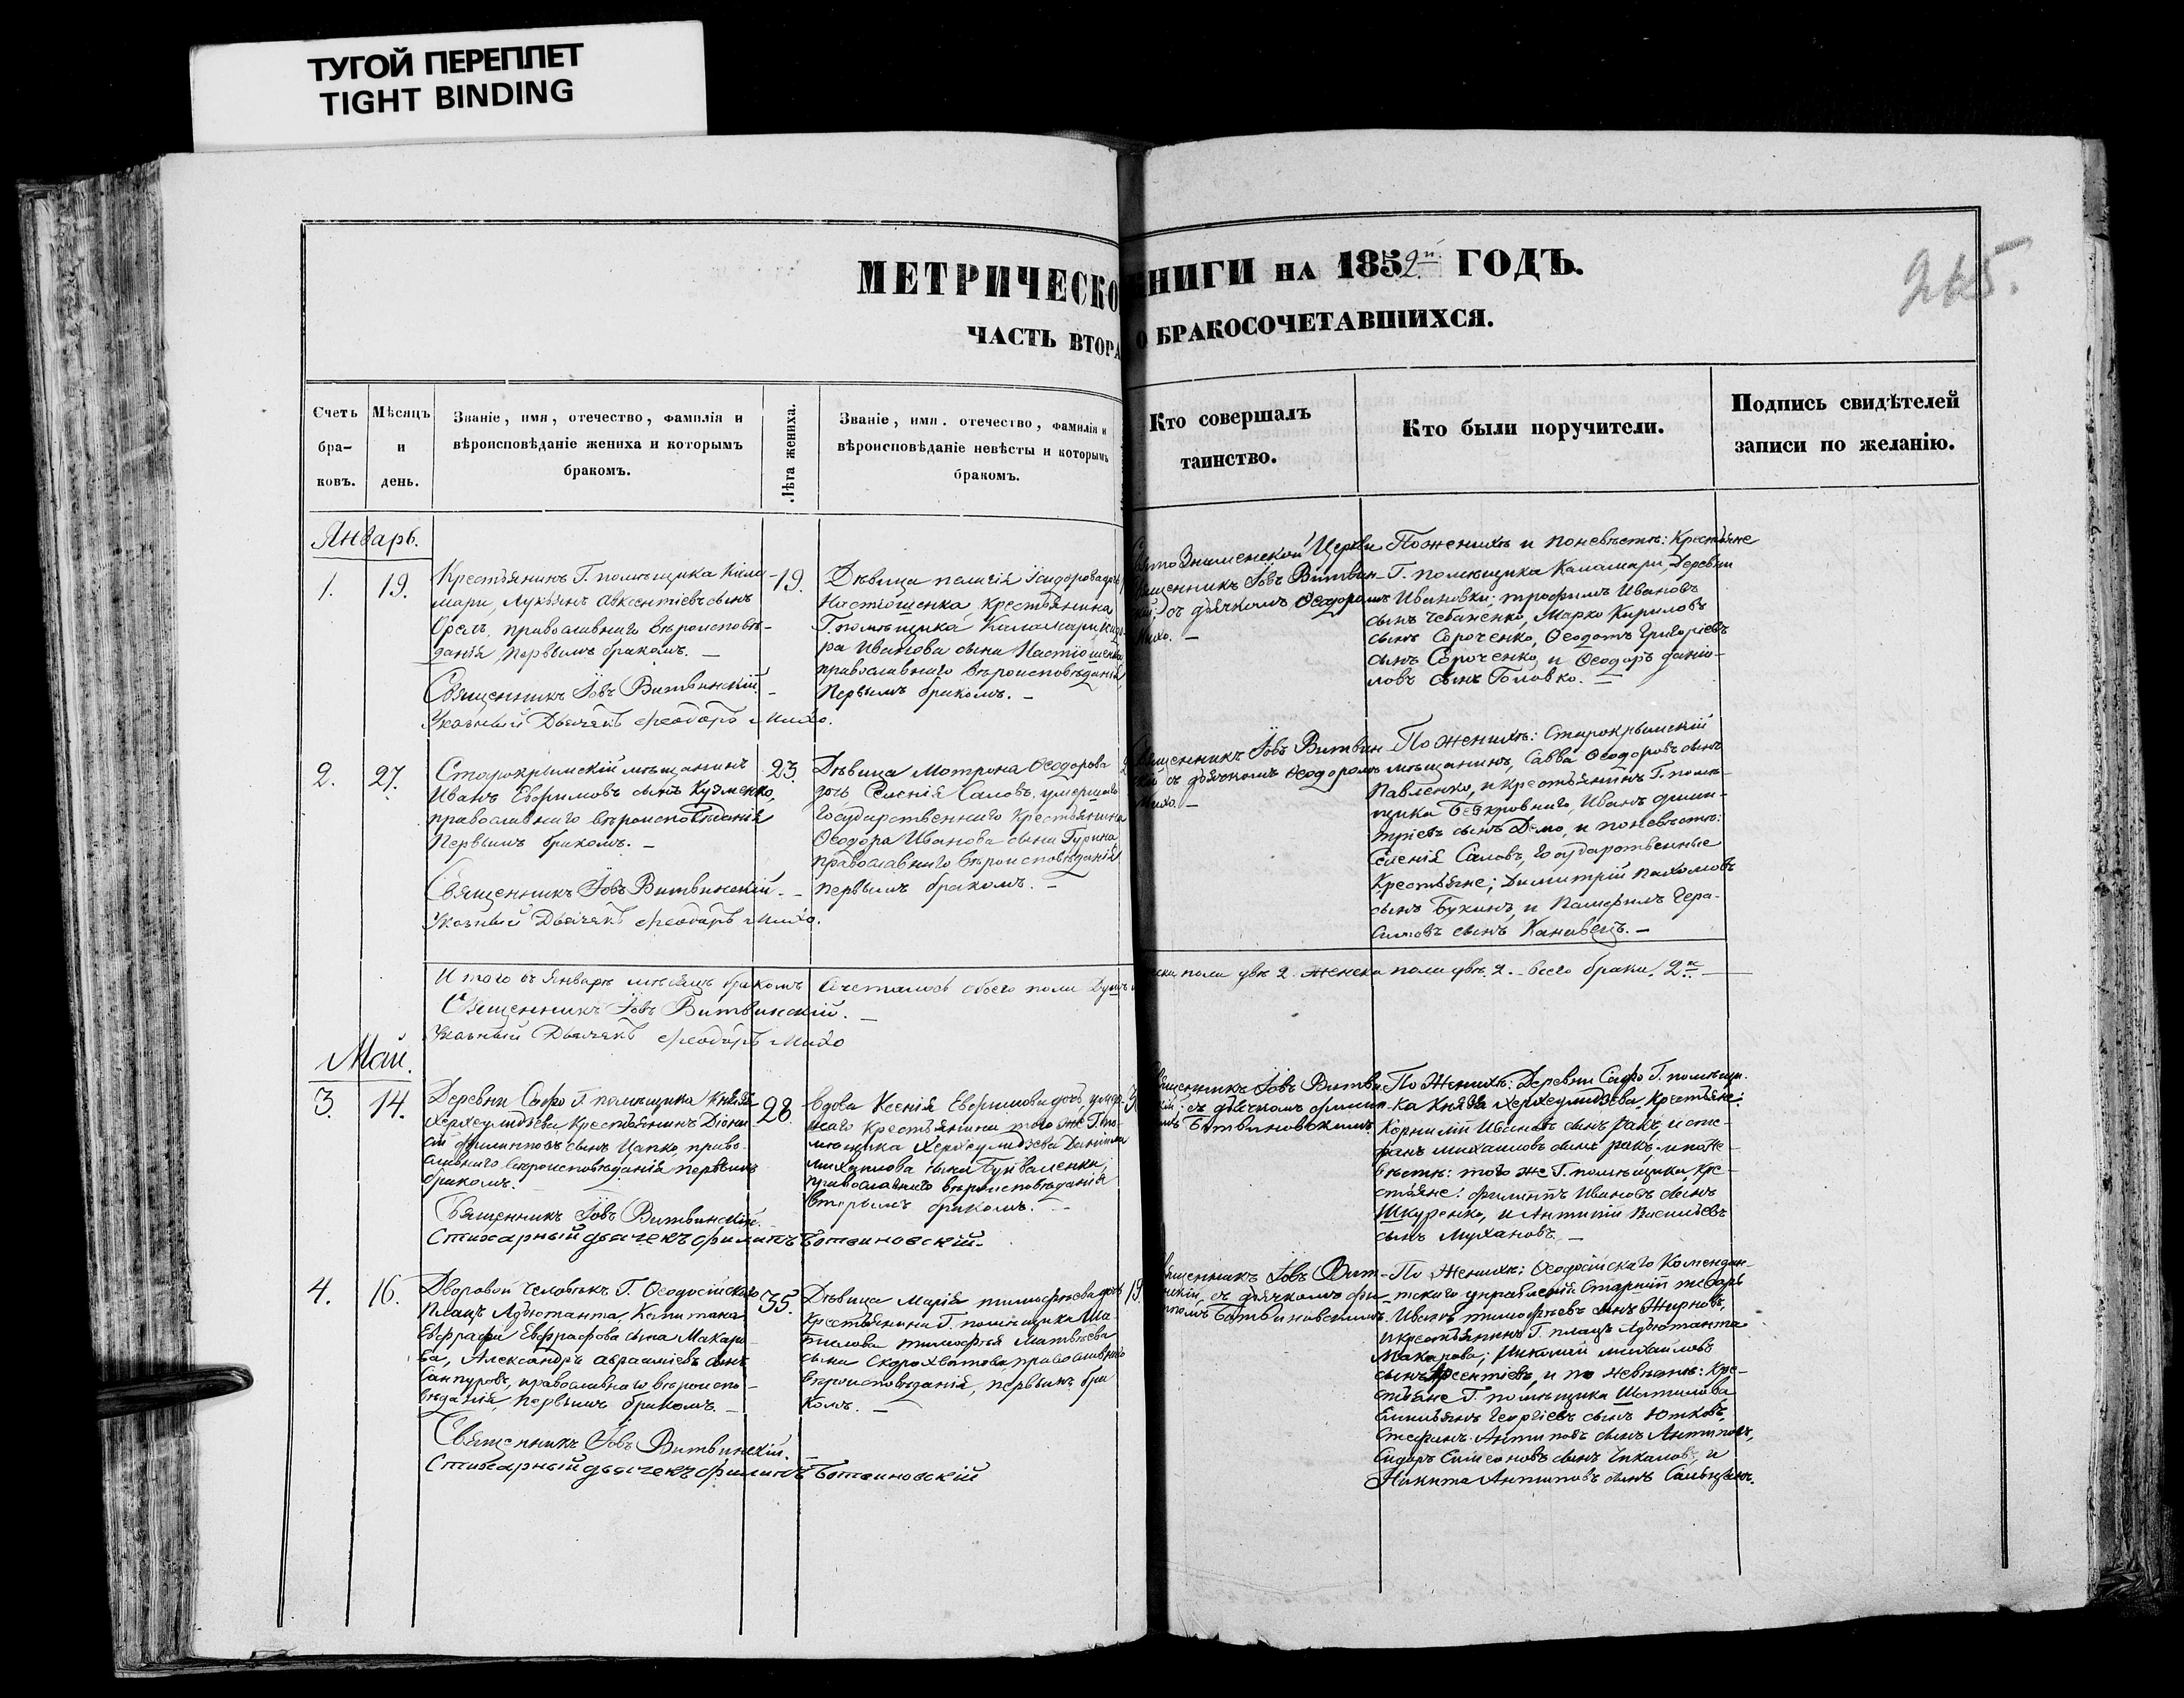 ТУГОЙ ПЕРЕПЛЕТ
TIGHT BINDING
МЕТРИЧЕСКО
НИГИ НА 1852й ГОДЪ.
265.
ЧАСТЬ ВТОРА
О БРАКОСОЧЕТАВШИХСЯ.
Счетъ бра- ковъ.
Мѣсяцъ и день.
Званіе, имя, отечество, фамилія и
вѣроисповѣданіе жениха и которымъ
бракомъ.
Лѣта жениха.
Званіе, имя. отечество, фамилія и
вѣроисповѣданіе невѣсты и которымъ
бракомъ.
Кто совершалъ
таинство.
Кто были поручители.
Подпись свидѣтелей
записи по желанію.
Январь.
1. 19.
Крестьянинъ Г. помѣщика Кала-
мари, Лукьянъ Авксентіевъ сынъ
Орелъ, православнаго вѣроисповѣ-
данія, первымъ бракомъ. —
Священникъ Іовъ Витвинскій. —
Указный Дьячекъ Ѳеодоръ Михо.
19.
Дѣвица Пелагія Исидорова дочь
крестьянина
Г. помѣщика Каламари, Исидо-
ра Иванова сына
православнаго вѣроисповѣданія,
Первымъ бракомъ. —
Знаменской Церкви
Священникъ Іовъ Витвин-
скій, съ дьячкомъ Ѳеодоромъ
Михо. —
По женихѣ и по невѣстѣ: Крестьяне
Г. помѣщика Каламари, Деревни
Ивановки; Трофимъ Ивановъ
сынъ Чебаненко, Марко Кириловъ
сынъ Сороченко, Ѳеодотъ Григоріевъ
сынъ Сороченко, и Ѳеодоръ Даніи-
ловъ сынъ Головко. —
2. 27.
Старокрымскій мѣщанинъ
Иванъ Евфимовъ сынъ Кузменко,
православнаго вѣроисповѣданія
Первымъ бракомъ. —
Священникъ Іовъ Витвинскій. —
Указный Дьячекъ Ѳеодоръ Михо.
23.
Дѣвица Мотрона Ѳеодорова
дочь Селенія Саловъ, умершаго
Государственнаго Крестьянина
Ѳеодора Иванова сына Гурина
православнаго вѣроисповѣданія
первымъ бракомъ. —
Священникъ Іовъ Витвин-
скій съ дьячкомъ Ѳеодоромъ
Михо. —
По женихѣ: Старокрымскій
мѣщанинъ, Савва Ѳеодоровъ сынъ
Павленко, и крестьянинъ Г. помѣ-
щика Иванъ Дими-
тріевъ сынъ Демо, и по невѣстѣ:
Селенія Саловъ, Государственные
Крестьяне; Димитрій Пахомовъ
сынъ Букинъ, и Памфилъ Гера-
симовъ сынъ Кановецъ. —
Итого въ Январѣ мѣсяцѣ бракомъ
сочеталось обоего пола Душъ
пола двѣ 2. женска пола двѣ. 2. — всего брака, 2а —
Священникъ Іовъ Витвинскій. —
Указный Дьячекъ Ѳеодоръ Михо
Май.
3. 14.
Деревни Сафо Г. помѣщика Князя
Херхеулидзева Крестьянинъ Діони-
сій Филиповъ сынъ Цапко, право-
славнаго вѣроисповѣданія первымъ
бракомъ. —
Священникъ Іовъ Витвинскій. —
Стихарный дьячекъ Филипъ Ботвиновскій.
28.
Вдова Ксенія Евфимова дочь, умер-
шаго Крестьянина того же Г. по-
мѣщика Херхеулидзева Даніила
Михаилова сына
православнаго вѣроисповѣданія
вторымъ бракомъ. —
3
Священникъ Іовъ Витви-
скій: съ дьячкомъ Филип-
омъ Ботвиновскимъ.
По Женихѣ: Деревни Сафо Г. помѣщи-
ка Князя Херхеулидзева, Крестьяне:
Корнилій Ивановъ сынъ Ракъ, и Сте-
фанъ Михаиловъ сынъ Ракъ; и по не-
вѣстѣ: того же Г. помѣщика, Кре-
стьяне: Филиппъ Ивановъ сынъ
Шкуренко, и Антипій Васильевъ
сынъ Мухановъ. —
4. 16.
Дворовой человѣкъ Г. Ѳеодосійскаго
Плацъ Адъютанта, Капитана
Евграфа Евграфова сына Макаро-
ва, Александръ Аврааміевъ сынъ
православнаго вѣроиспо-
вѣданія, Первымъ бракомъ. —
Священникъ Іовъ Витвинскій. —
Стихарный дьячекъ Филипъ Ботвиновскій
35.
Дѣвица Марія Тимофѣева дочь
Крестьянина Г. помѣщика Ша-
тилова Тимофѣя Матвѣева
сына Скорохватова православнаго
вѣроисповѣданія, первымъ бра-
комъ. —
19
Священникъ Іовъ Вит-
винскій, съ дьячкомъ Фи-
липомъ Ботвиновскимъ.
По Женихѣ: Ѳеодосійскаго Комендан-
тскаго управленія Старшій писарь
Иванъ Тимофѣевъ сынъ Жирновъ,
и крестьянинъ Г. плацъ Адъютанта
Макарова; Николай Михайловъ
сынъ Арсентіевъ, и по невѣстѣ: Кре-
стьяне Г. помѣщика Шатилова
Емильянъ Георгіевъ сынъ Ютковъ,
Стефанъ Антиповъ сынъ Антиповъ,
Сидоръ Симеоновъ сынъ Чикаловъ, и
Никита Антиповъ сынъ